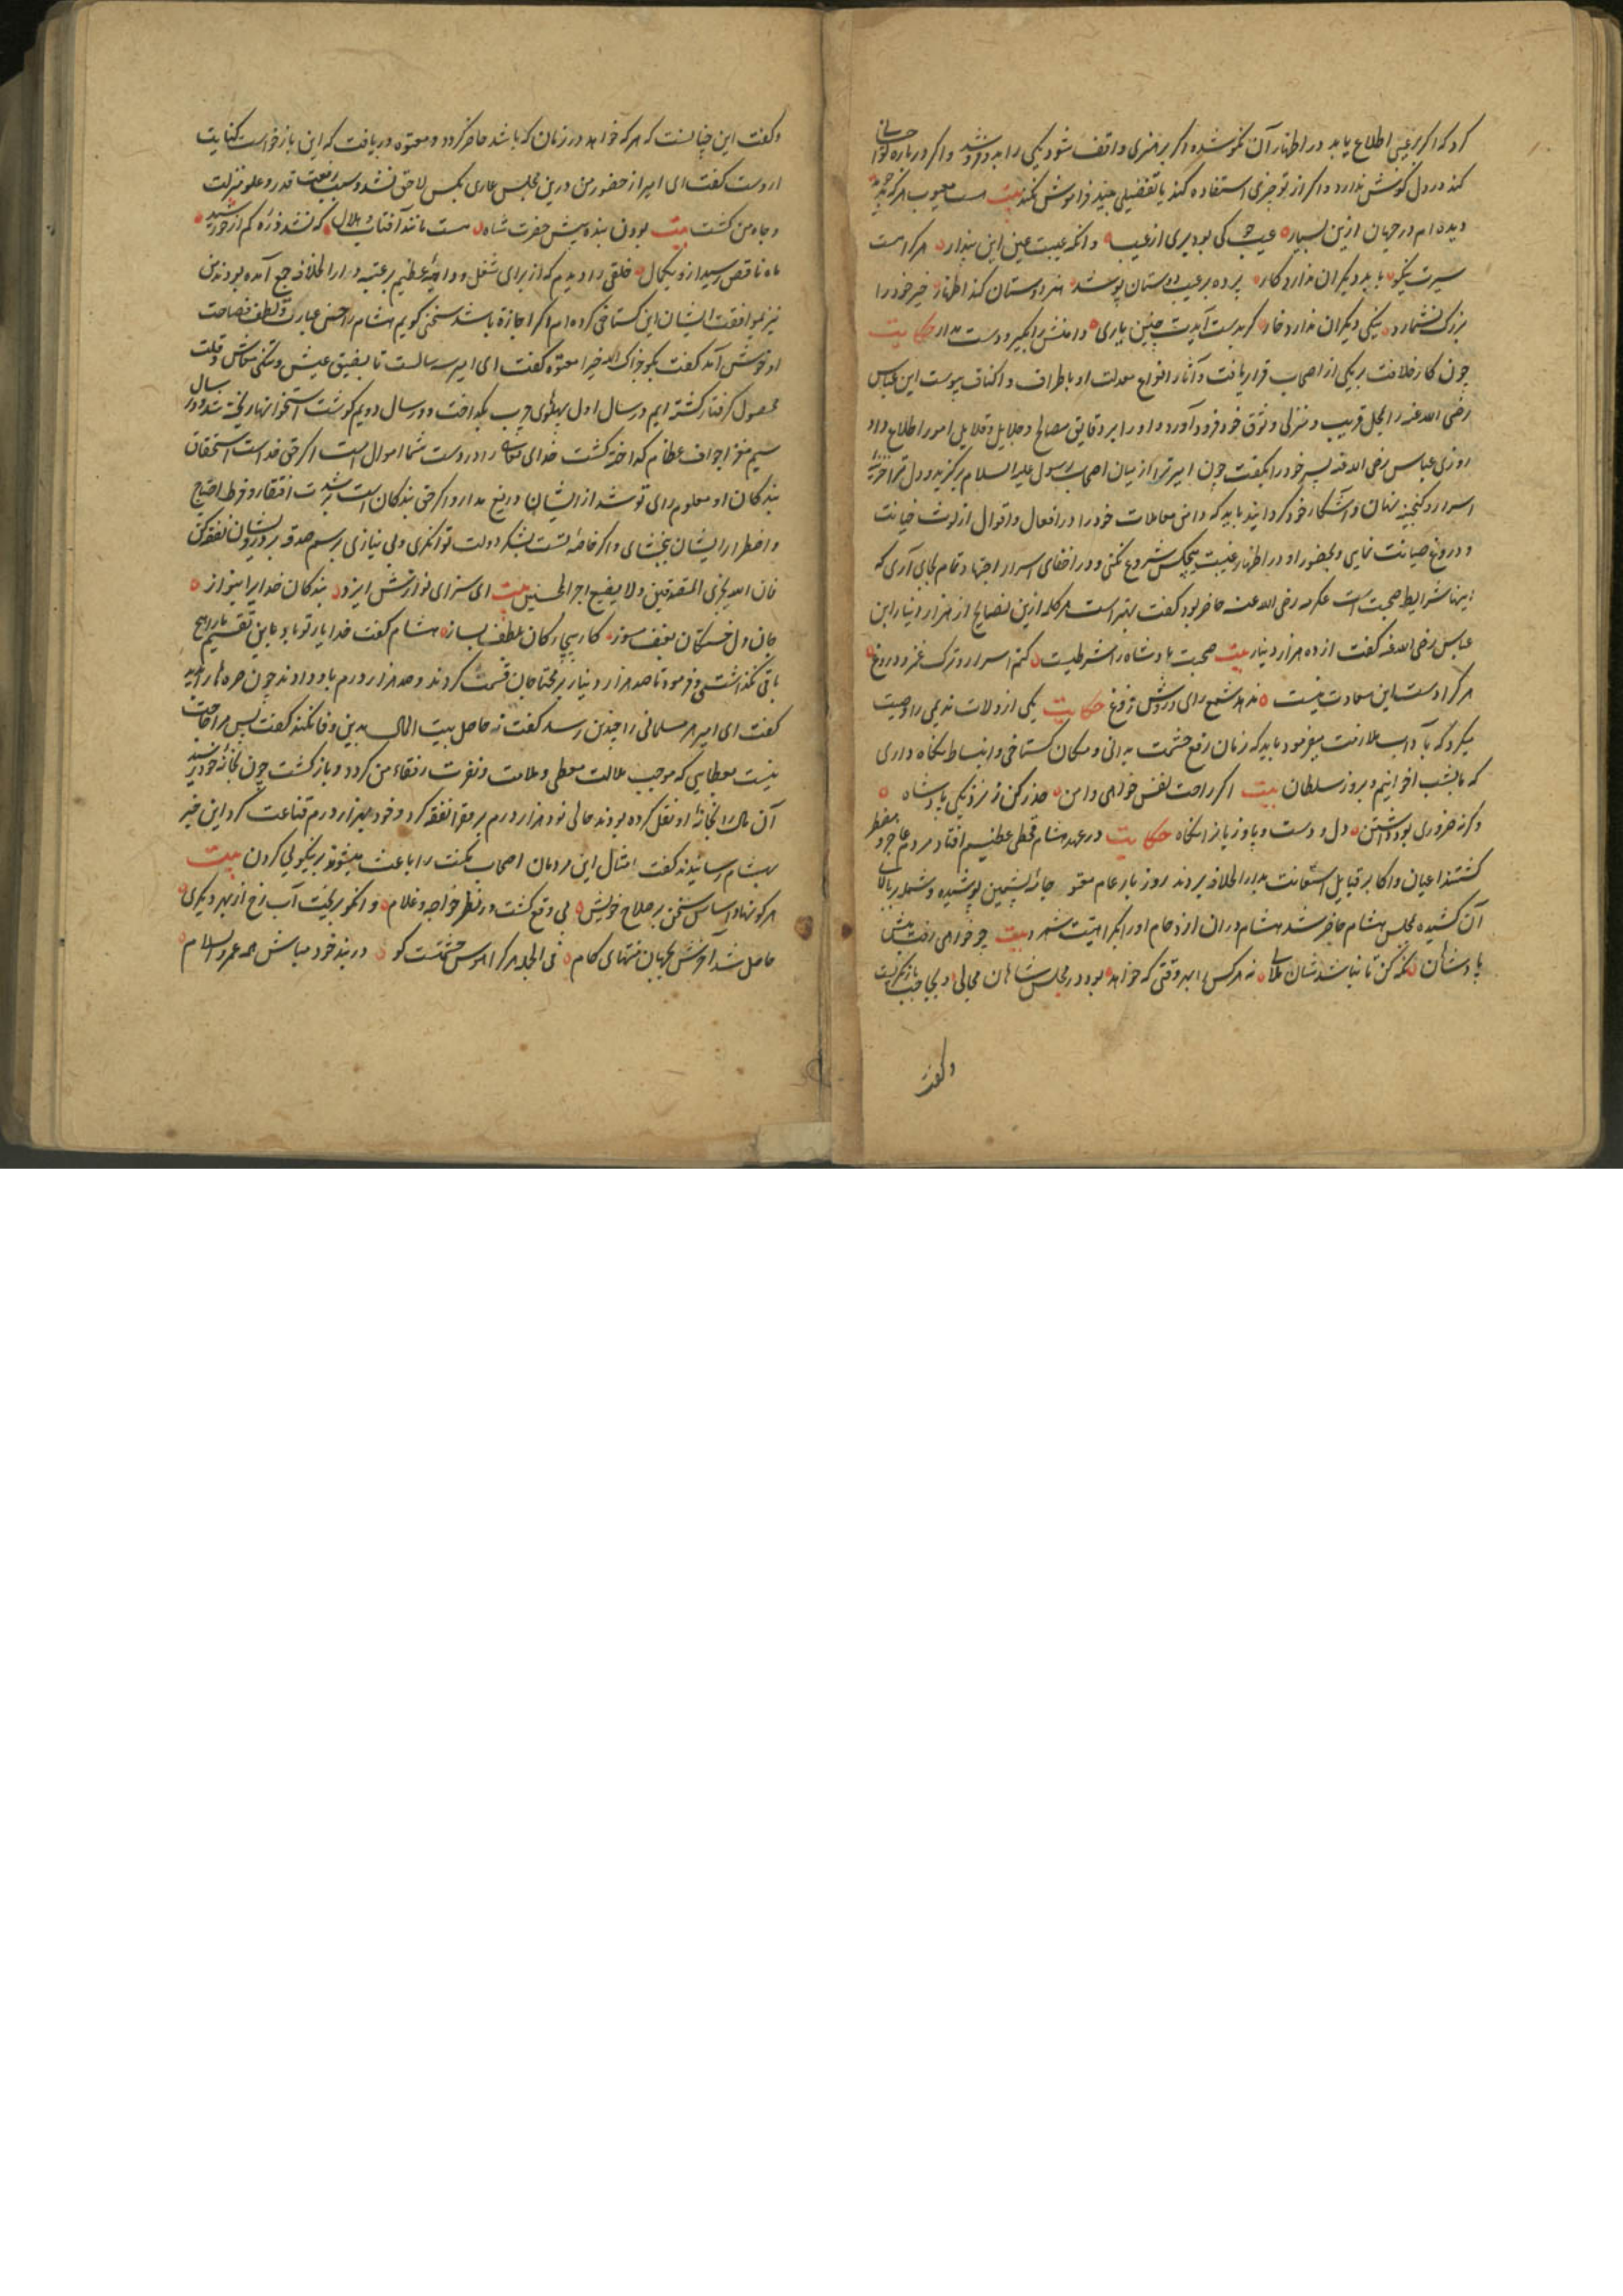 کرد که اگر بر عیبی اطلاع یابد در اظهار آن نکوشد و اگر بر هنری واقف شود یکی را به ده فروشد و اگر درباره تو احسانی
کند در دل گوش ندارد و اگر از تو چیزی استفاده کند یا تفضیلی بیند فراموش نکند بیت است معیوب هر که
دیده ام در جهان ازین بسیار عیب کی بود بری از عیب وانکه عیبست عین این پندار هر کرا هست
سیرت نیکو با بد دیگران ندارد کار پرده بر عیب دوستان پوشد هنر دوستان کند اظهار خیر خود را
بزرگ نشمارد نیکی دیگران ندارد خوار گر بدست آیدت چنین یاری دامنش گیر و دست مدار حکایت
چون کار خلافت بر یکی از اصحاب قرار یافت و آثار انواع معدلت او باطراف و اکناف پیوست ابن عباس
رضی الله عنه را بمحل قریب و منزلی و ثوق خود فرود آورد و او را بر دقایق مصالح و جلایل و قلایل امور اطلاع داد
روزی عباس رضی الله عنه پسر خود را بگفت چون امیر ترا از میان اصحاب رسول علیه السلام برگزید و دل ترا خزینه
اسرار و گنجینه نهان و آشکار خود گردانید باید که دامن معاملات خود را در افعال و اقوال از لوث خیانت
و دروغ صیانت نمایی و بحضور او در اظهار غیبت هیچکس شروع نکنی و در اخفای اسرار اجتهاد تمام بجای آری که
اینها شرایط صحبت است عکرمه رضی الله عنه حاضر بود گفت بهتر است هر کلمه ازین نصایح از هزار دینار ابن
عباس رضی الله عنه گفت از ده هزار دینار بیت صحبت پادشاه را شرطیست کتم اسرار و ترک غمز و دروغ
هر کرا دست این سعادت نیست ندهد شمع رای و روش فروغ حکایت یکی از ولات ندیمی را وصیت
میکرد که بآداب ملازمت میفرمود باید که زمان رفع حشمت بدانی و مکان گستاخی و انبساط نگاه داری
که ما بشب اخوانیم و بروز سلطان بیت اگر راحت نفس خواهی و امن حذر کن ز نزدیکی پادشاه
وگرنه ضروری بود داشتن دل و دست و پا و زبان را نگاه حکایت در عهد هشام قحطی عظیم افتاد مردم عاجز و مضطر
گشتند اعیان و اکابر قبایل استعانت بدار الخلافه بردند روز بار عام معتوه جامه پشمین پوشیده و شمله بر بالای
آن کشیده مجلس هشام حاضر شد هشام در آن ازدحام او را بکراهیت شمرد بیت چو خواهی رفت پیش
پادشاهان نگه کن تا نباشد شان ملالی نه هر کس را بهر وقتی که خواهد بود در مجلس شاهان مجالی و بحاجب بازنگریست
و گفت
و گفت این چنانست که هر که خواهد در زمان که باشد حاضر گردد و معتوه دریافت که این بازخواست کنایت
از اوست گفت ای امیر از حضور من درین مجلس عاری بکس لاحق نشد و سبب رفعت قدر و علو منزلت
و جاه من گشت بیت بودن بنده پیش حضرت شاه هست مانند آفتاب و هلال که نشد ذره کم از خورشید
ماه ناقص رسید ازو بکمال خلقی را دیدم که از برای شغل و داعیه عظیم بر عتبه دار الخلافه جمع آمده بودند من
نیز بموافقت ایشان این گستاخی کرده ام و گر اجازه باشد سخنی گویم هشام را حسن عبارت و لطف فصاحت
او خوش آمد گفت بگو جزاک الله خیرا معتوه گفت ای امیر سه سالست تا بضیق عیش و تنگی معاش و قلت
محصول گرفتار گشته ایم در سال اول پهلوی چرب بگداخت و در سال دویم گوشت استخوانها ریخته شد و در سال
سیم مغز اجواف عظام گداخته گشت خدای تعالی را در دست شما اموال است اگر حق خداست استحقاق
بندگان او معلوم رای تو شد از ایشان دریغ مدار و اگر حق بندگان است بر شدت افتقار و فرط احتیاج
و اضطرار ایشان ببخشای و اگر خاصه تست بشکر دولت توانگری و بی نیازی برسم صدقه بر درویشان نفقه کن
فان الله یجزی المتصدقین و لا یضیع اجر المحسنین بیت ای سزای نوازش ایزد بندگان خدایرا بنواز
جان دل خستگان بعنف مسوز کار بیچارگان بلطف بساز هشام گفت خدا یار تو باد باین تقسیم ما را هیچ
باقی نگذاشتی و فرمود تا صد هزار دینار بر محتاجان قسمت کردند و صد هزار درم باو دادند چون صره ها را بدید
گفت ای امیر هر مسلمانی را چندین رسد گفت نه حاصل بیت المال بدین وفا نکند گفت پس مرا حاجت
نیست بعطایی که موجب ملالت معطی و ملامت و نفرت رفقاء من گردد و بازگشت چون بخانه خود رسید
آن مال را بخانه او نقل کرده بودند حالی نود هزار درم بر فقرا نفقه کرد و خود بهزار درم قناعت کرد این خبر
بهشام رسانیدند گفت امثال این مردمان اصحاب مکنت را باعث میشوند بر نیکویی کردن بیت
هر کو نهاد اساس سخن بر صلاح خویش بی وقع گشت در نظر خواجه و غلام وانکو بریخت آب رخ از بهر دیگری
حاصل شد آخرش بجهان منتهای کام فی الجمله هر کرا هوس حشمتست گو در بند خود مباش همه عمر و السلام